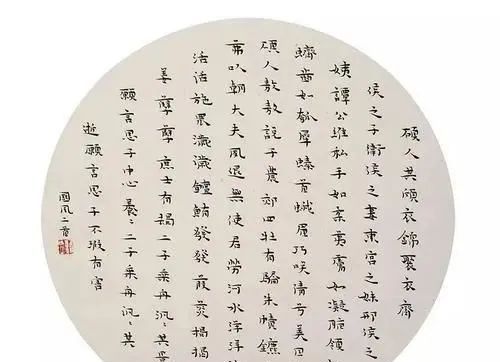 碩人其頎衣錦褧衣齊
侯之子衛侯之妻東宮之妹邢侯之
姨譚公維私手如柔荑膚如凝脂領
蠐齒如瓠犀螓首蛾眉巧笑倩兮美目
碩人敖敖說于農郊四牡有驕朱幩鑣
茀以朝大夫夙退無使君勞河水洋洋
活活施罛濊濊鱣鮪發發葭菼揭揭
姜孽孽庶士有朅二子乘舟汎〻其景
願言思子中心養〻二子乘舟汎〻其
逝願言思子不瑕有害
國風二首